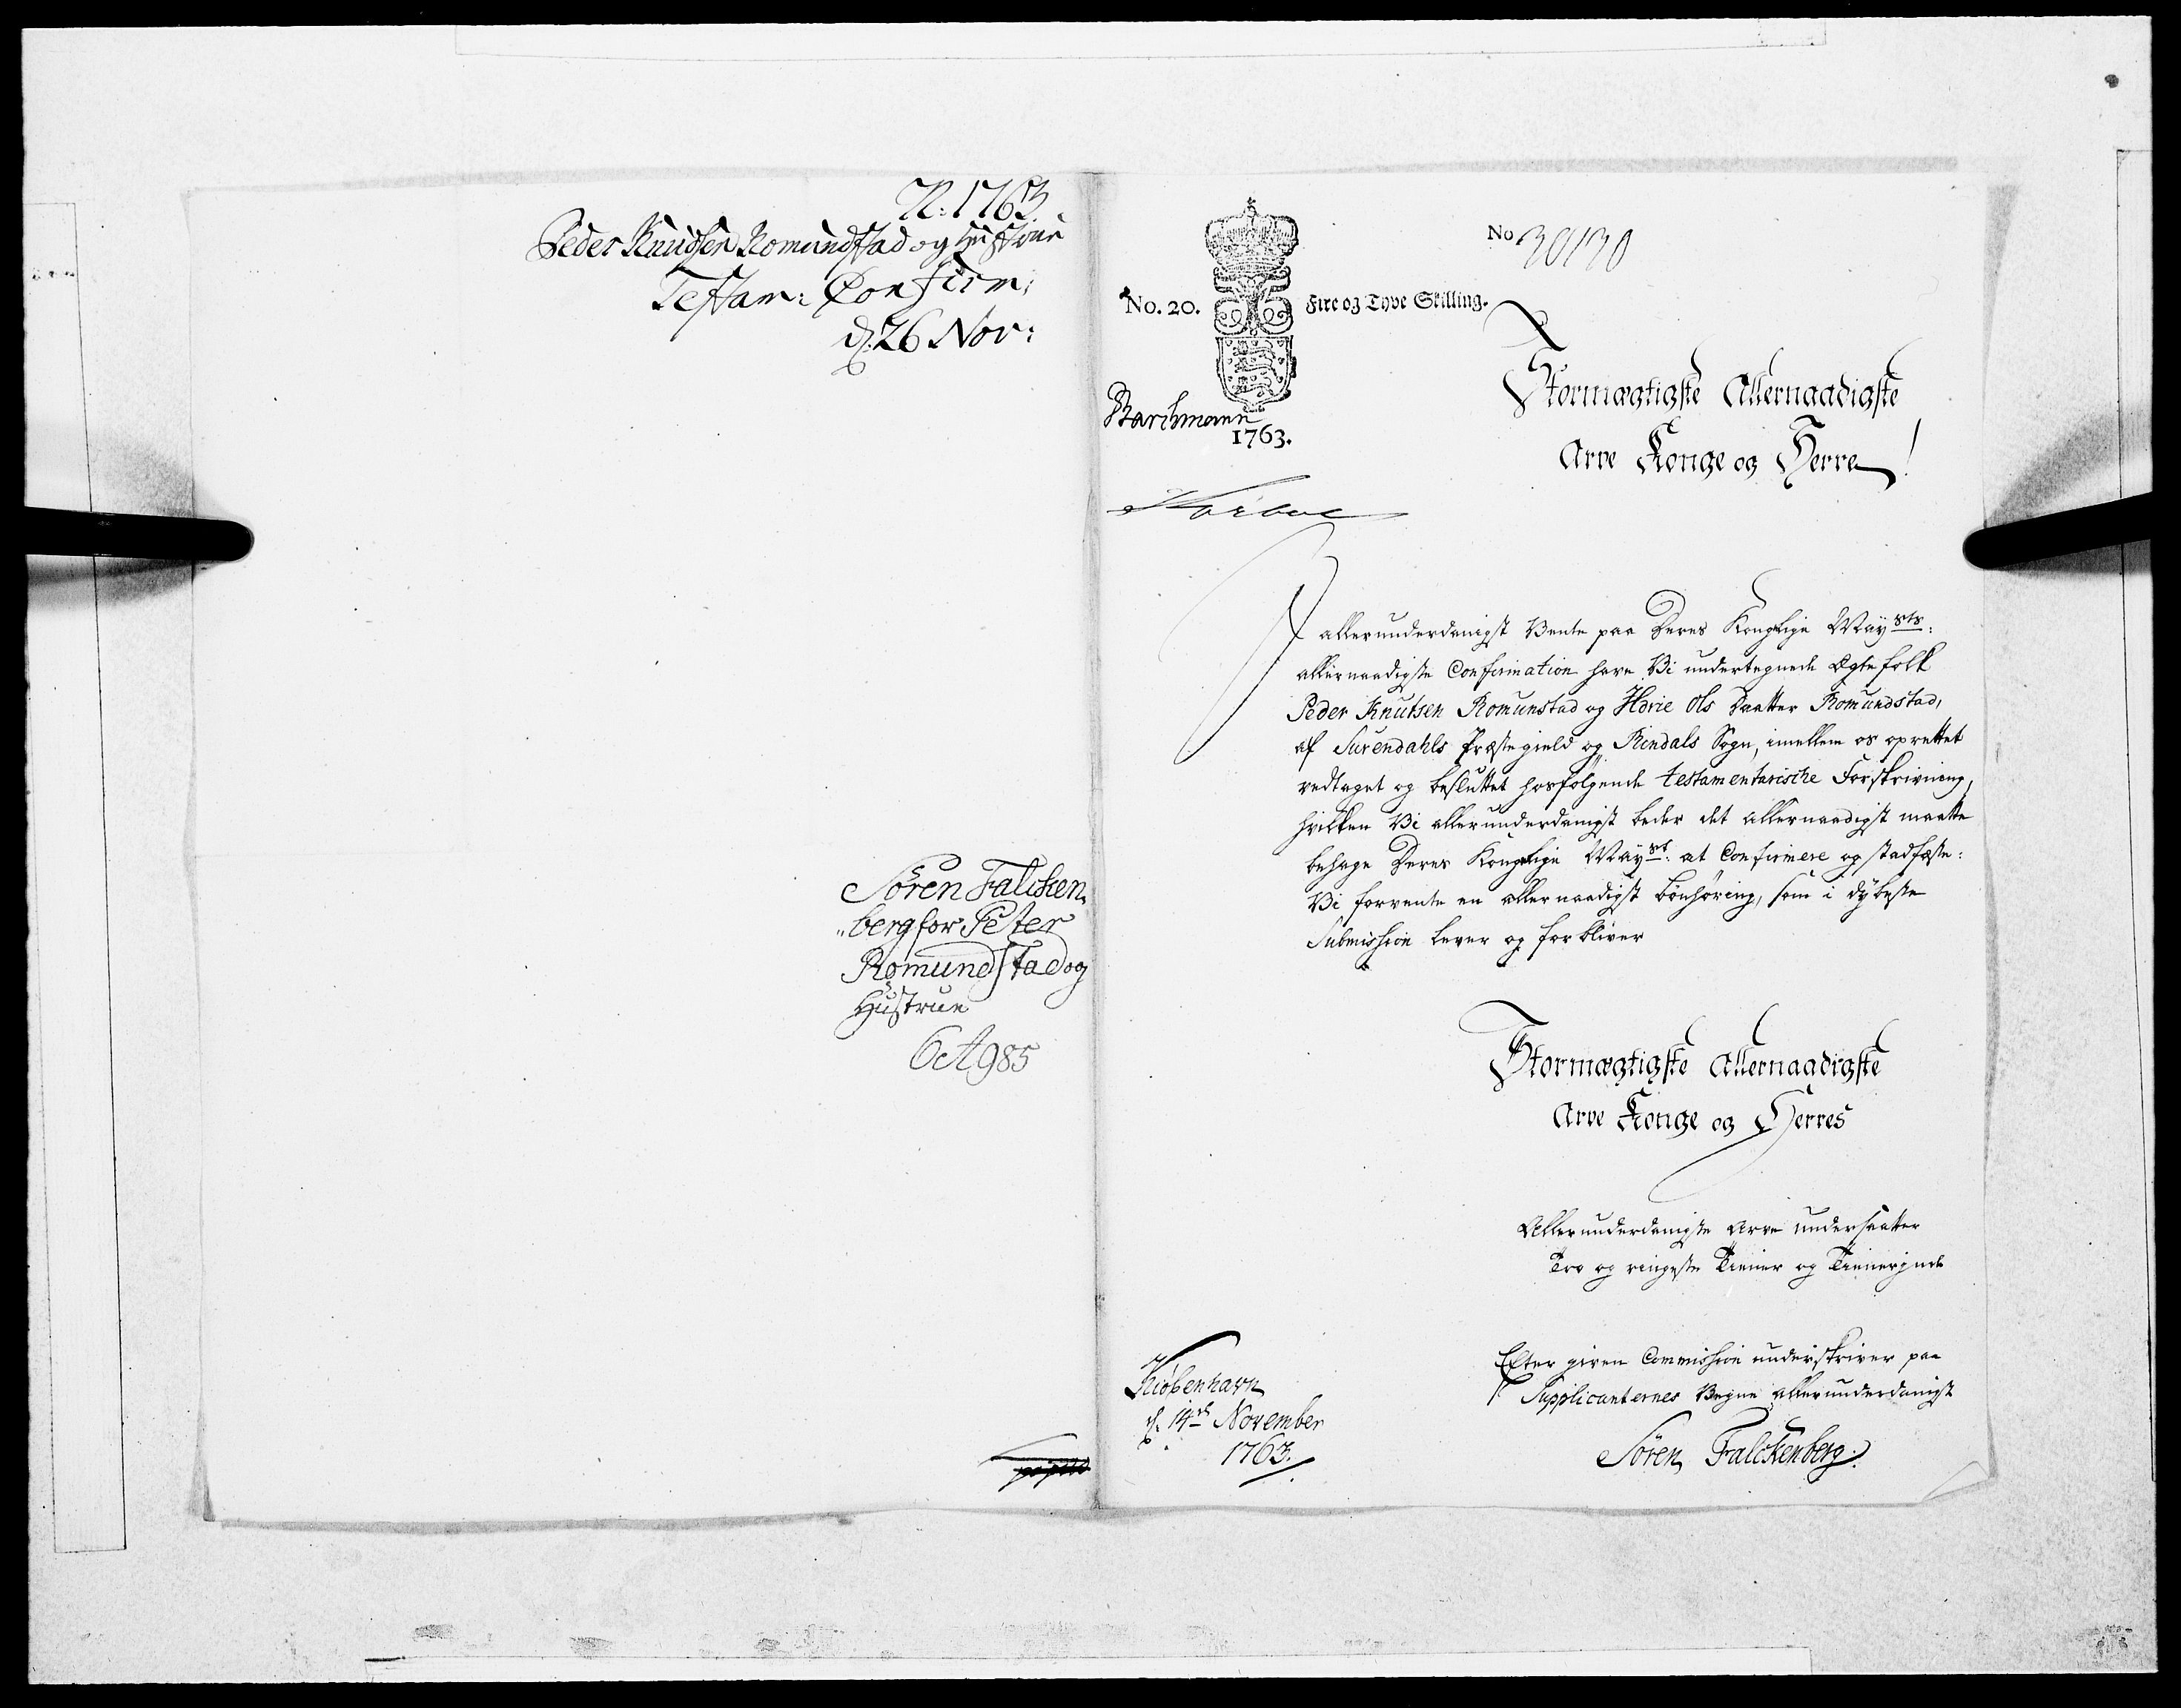 N: 1763.
Peder Knudsen Romundstad og Hustrue
Testam: Confirm:
d: 26 Nov:
Sören Falcken
"berg for Peter
Romundstad og
Hustrue
6 A 985
No. 20.
Fire og Tyve Skilling.
1763.
Barchmann
No 30130
Stormægtigste Allernaadigste
Arve Konge og Herre!
I allerunderdanigst Vente paa Deres Kongelige Maysts:
allernaadigste Confirmation have Vi undertegnede Egtefolk
Peder Knutsen Romunstad og Hdrie Ols Daatter Romundstad,
af Surendahls Præstegield og Rindals Sogn, imellem os oprettet
vedtaget og besluttet hosfølgende testamentarische Forskrivning,
hvilken Vi allerunderdanigst beder det allernaadigst maatte
behage Deres Kongelige Mayst: at Confirmere og stadfæste:
Vi forvente en allernaadigst bönhöring, som i dybeste
Submission lever og forbliver
Stormægtigste Allernaadigste
Arve Konge og Herres
Allerunderdanigste Arve undersaatter
Tro og ringeste Tiener og Tienerinde
Kiöbenhavn
d: 14de November
1763.
Efter given Commission underskriver paa
Supplicanternes Vegne allerunderdanigst
Sören Falckenberg.